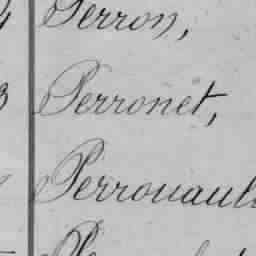 Perron,
Perronet,
Perrouaul